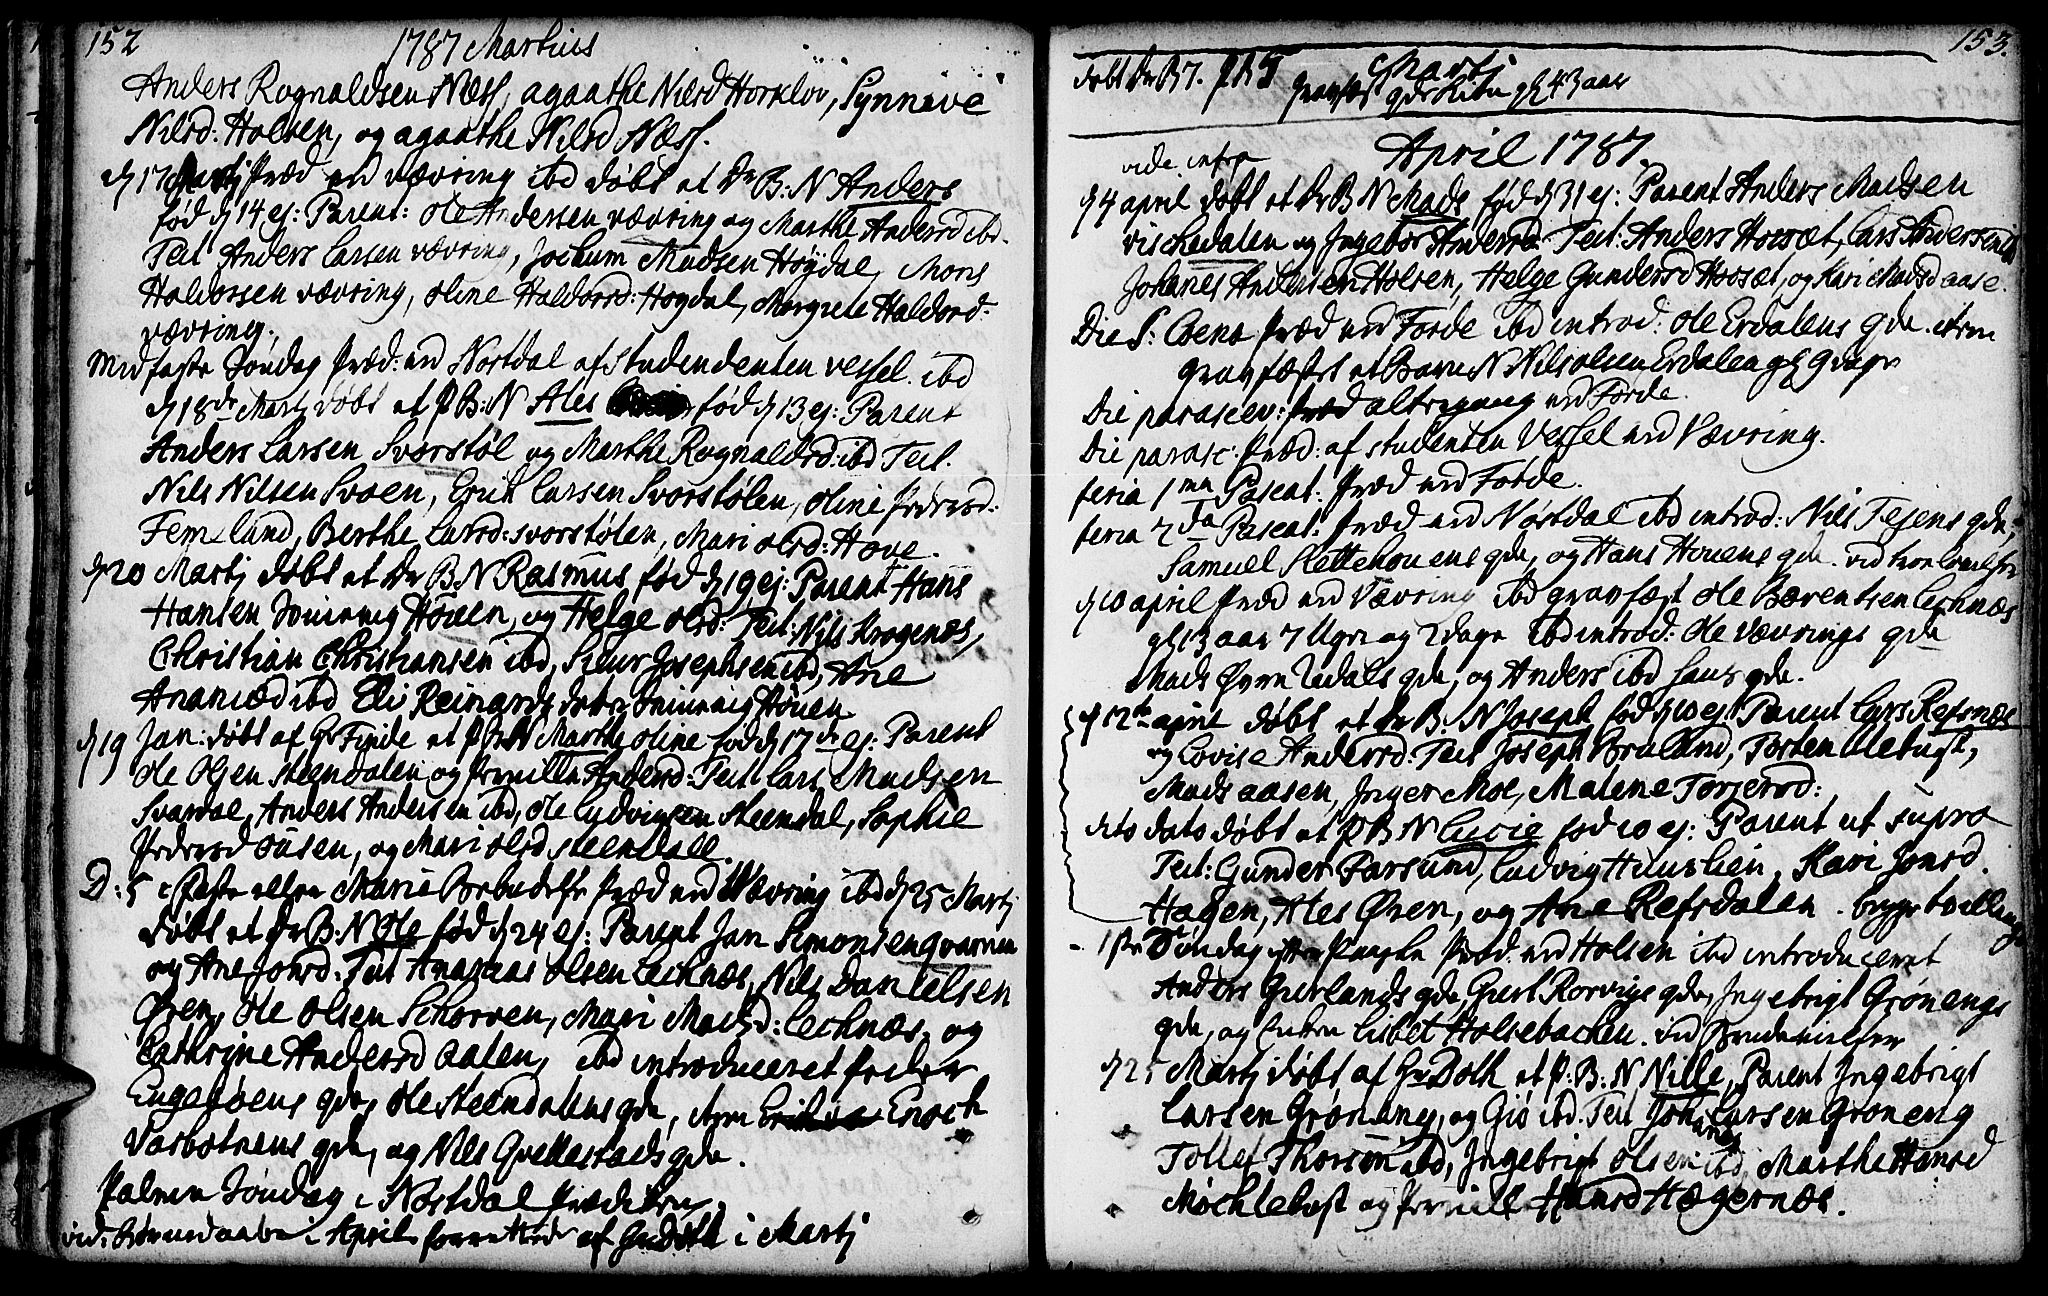 152
1787 Martius
Anders Rognaldsen Næss, agaathe Nilsd Horklov, Synneve
Nilsd: Holsen, og agaathe Nilsd Næss.
d 17 Martj Præd ved vævring ibd døbt et Dr B: N Anders
fød d 14 ej: Parent: Ole Andersen vævring og Marthe Andersd ibd.
Test Anders Larsen vævring, Jochum Madsen Høydal, Mons
Haldorsen vævring, Oline Haldorsd: Høgdal, Margrete Haldorsd:
vævring.
Midfaste Søndag Præd: ved Nøstdal af Studendenten vessel. ibd
d 18de Martj døbt et P B: N Ales fød d 13 ej: Parent
Anders Larsen Svorstøl og Marthe Rognaldsd: ibd Test.
Nils Nilsen Svoen, Erik Larsen Svorstølen, Oline Pedersd:
Femland, Berthe Larsd: svorstølen, Mari Olsd: Hove.
d 20 Martj døbt et Dr B N Rasmus fød d 19 ej: Parent Hans
Hansen Høuen, og Helge Olsd: Test: Nils Krogenæs,
Christian Christiansen ibd, Siur Josephsen ibd, Ane
Ananiæd ibd Eli Reinardsdotter Høuen
d 19 Jan: døbt af Hr Finde et P B N Marthe Oline fød d 17de ej: Parent
Ole Olsen Steendalen og Pernille Andersd: Test Lars Madsen
Svardal, Anders Andersen ibd, Ole Ludvigsen Steendal, Sophie
Pedersd Øusen, og Mari Olsd Steendall.
D: 5 i Faste eller Mariæ Præd ved Vævring ibd d 25 Martj
døbt et Dr B: N Ole fød d 24 ej: Parent Jan Simonsen Qvamen
og Ane Jonsd: Test Ananias Olsen Lechnæs, Nils Danielsen
Øren, Ole Olsen Schorven, Mari Madsd: Lechnæs, og
Cathrine Andersd Aalen, ibd introduceret Peder
Engebøens qde, Ole Steendalens qde, Enoch
Varbotnens qde, og Nils Qvellestads qde.
Palme Søndag i Nøstdal Prædiken,
vid: i April af i Martj
153.
døbt Dr B 7. P B 5 Martj
gravfæst gl 43 aar
April 1787.
vide infra
d 4 april døbt et Dr B N Mads fød d 31 ej: Parent Anders Madsen
vischedalen og Ingebor Andersd Test: Anders Hovsæt, Lars Andersen
Johanes Andersen Holsen, Helge Gundersd Hovsæt, og Kari Madsd aase.
Die S: Coena Præd ved Førde ibd introd: Ole Erdalens qde. item
gravfæstet et Barn N Nils Olsen Erdalen gl 9 dage
Die parascev: Præd altergang ved Førde.
Die parasc: Præd: af studenten Vessel ved Vævring.
feria 1ma Pascat: Præd ved Førde.
feria 2da Pascat: Præd ved Nøstdal ibd introd: Nils Tefens qde,
Samuel Slettehouens qde, og Hans Houens qde.
d 10 april Præd ved Vævring ibd gravfæst Ole Bærentsen Lechnæs
gl 13 aar 7 Uger og 2 dage ibd introd: Ole Vævrings qde
Mads Øvre Uedals qde, og Anders ibd qde.
d 12te april døbt et Dr B. N Joseph fød d 10 ej Parent Lars Refsnæs
og Lovise Andersd: Test Joseph Bruland, Torsten
Mads aasen, Inger Moe, Malene Torjersd:
dito dato døbt et P B N Lucie fød 10 ej: Parent ut supra
Test: Gunder Farsund, Ludvig Huuslien, Kari Jonsd.
Hagen, Ales Øren, og Ane Refsdalen. begge tvillinge
1ste Søndag efter Paaske Præd: ved Holsen ibd introduceret
Anders Gierlands qde, Giert Rørvigs qde, Ingebrigt Grønengs
qde, og Lisbet Holsebachen.
d 25 Martj døbt af Hr Doth et P: B: N Nille, Parent Ingebrigt
Larsen Grøneng, og Giø ibd. Test Johanes Larsen Grøneng
Tollef Thorsen ibd, Ingebrigt Olsen ibd, Marthe Hansd
Møchlebøst og Pernille Hansd Hægernæs.